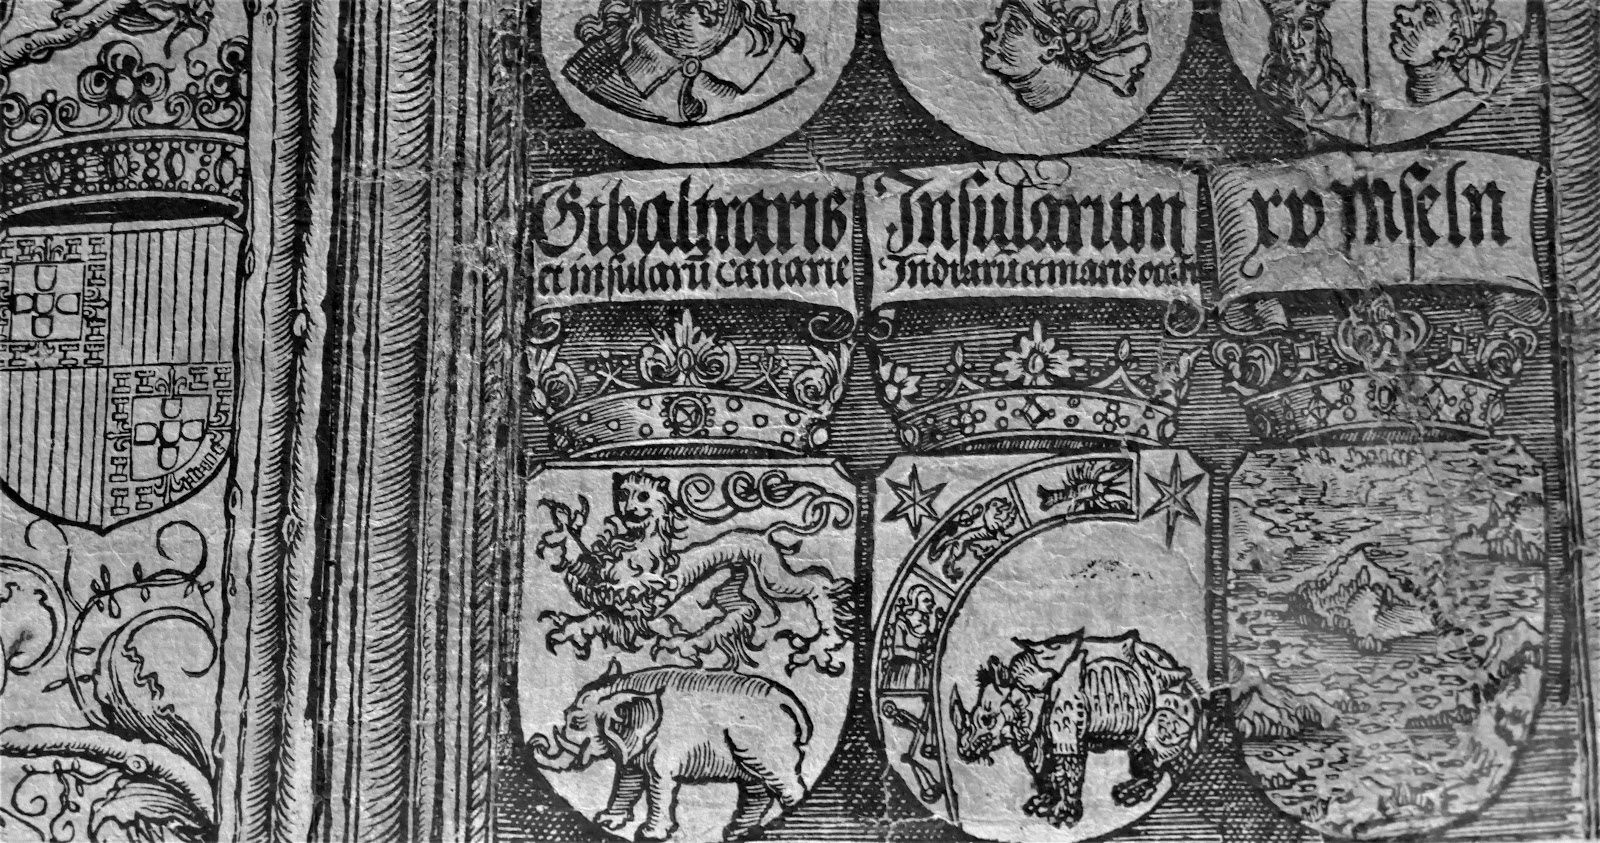 Gibaltraris
et insularū canarie
Insularum
Indiarū et maris occeā
xv Inseln